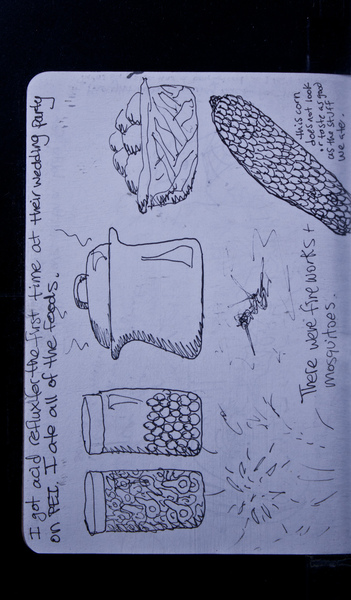 I got acid reflux for the first time at their wedding party
on PEI. I ate all of the foods.
this corn
does not look
or taste as good
as the stuff
we ate.
There were fireworks +
mosquitoes.